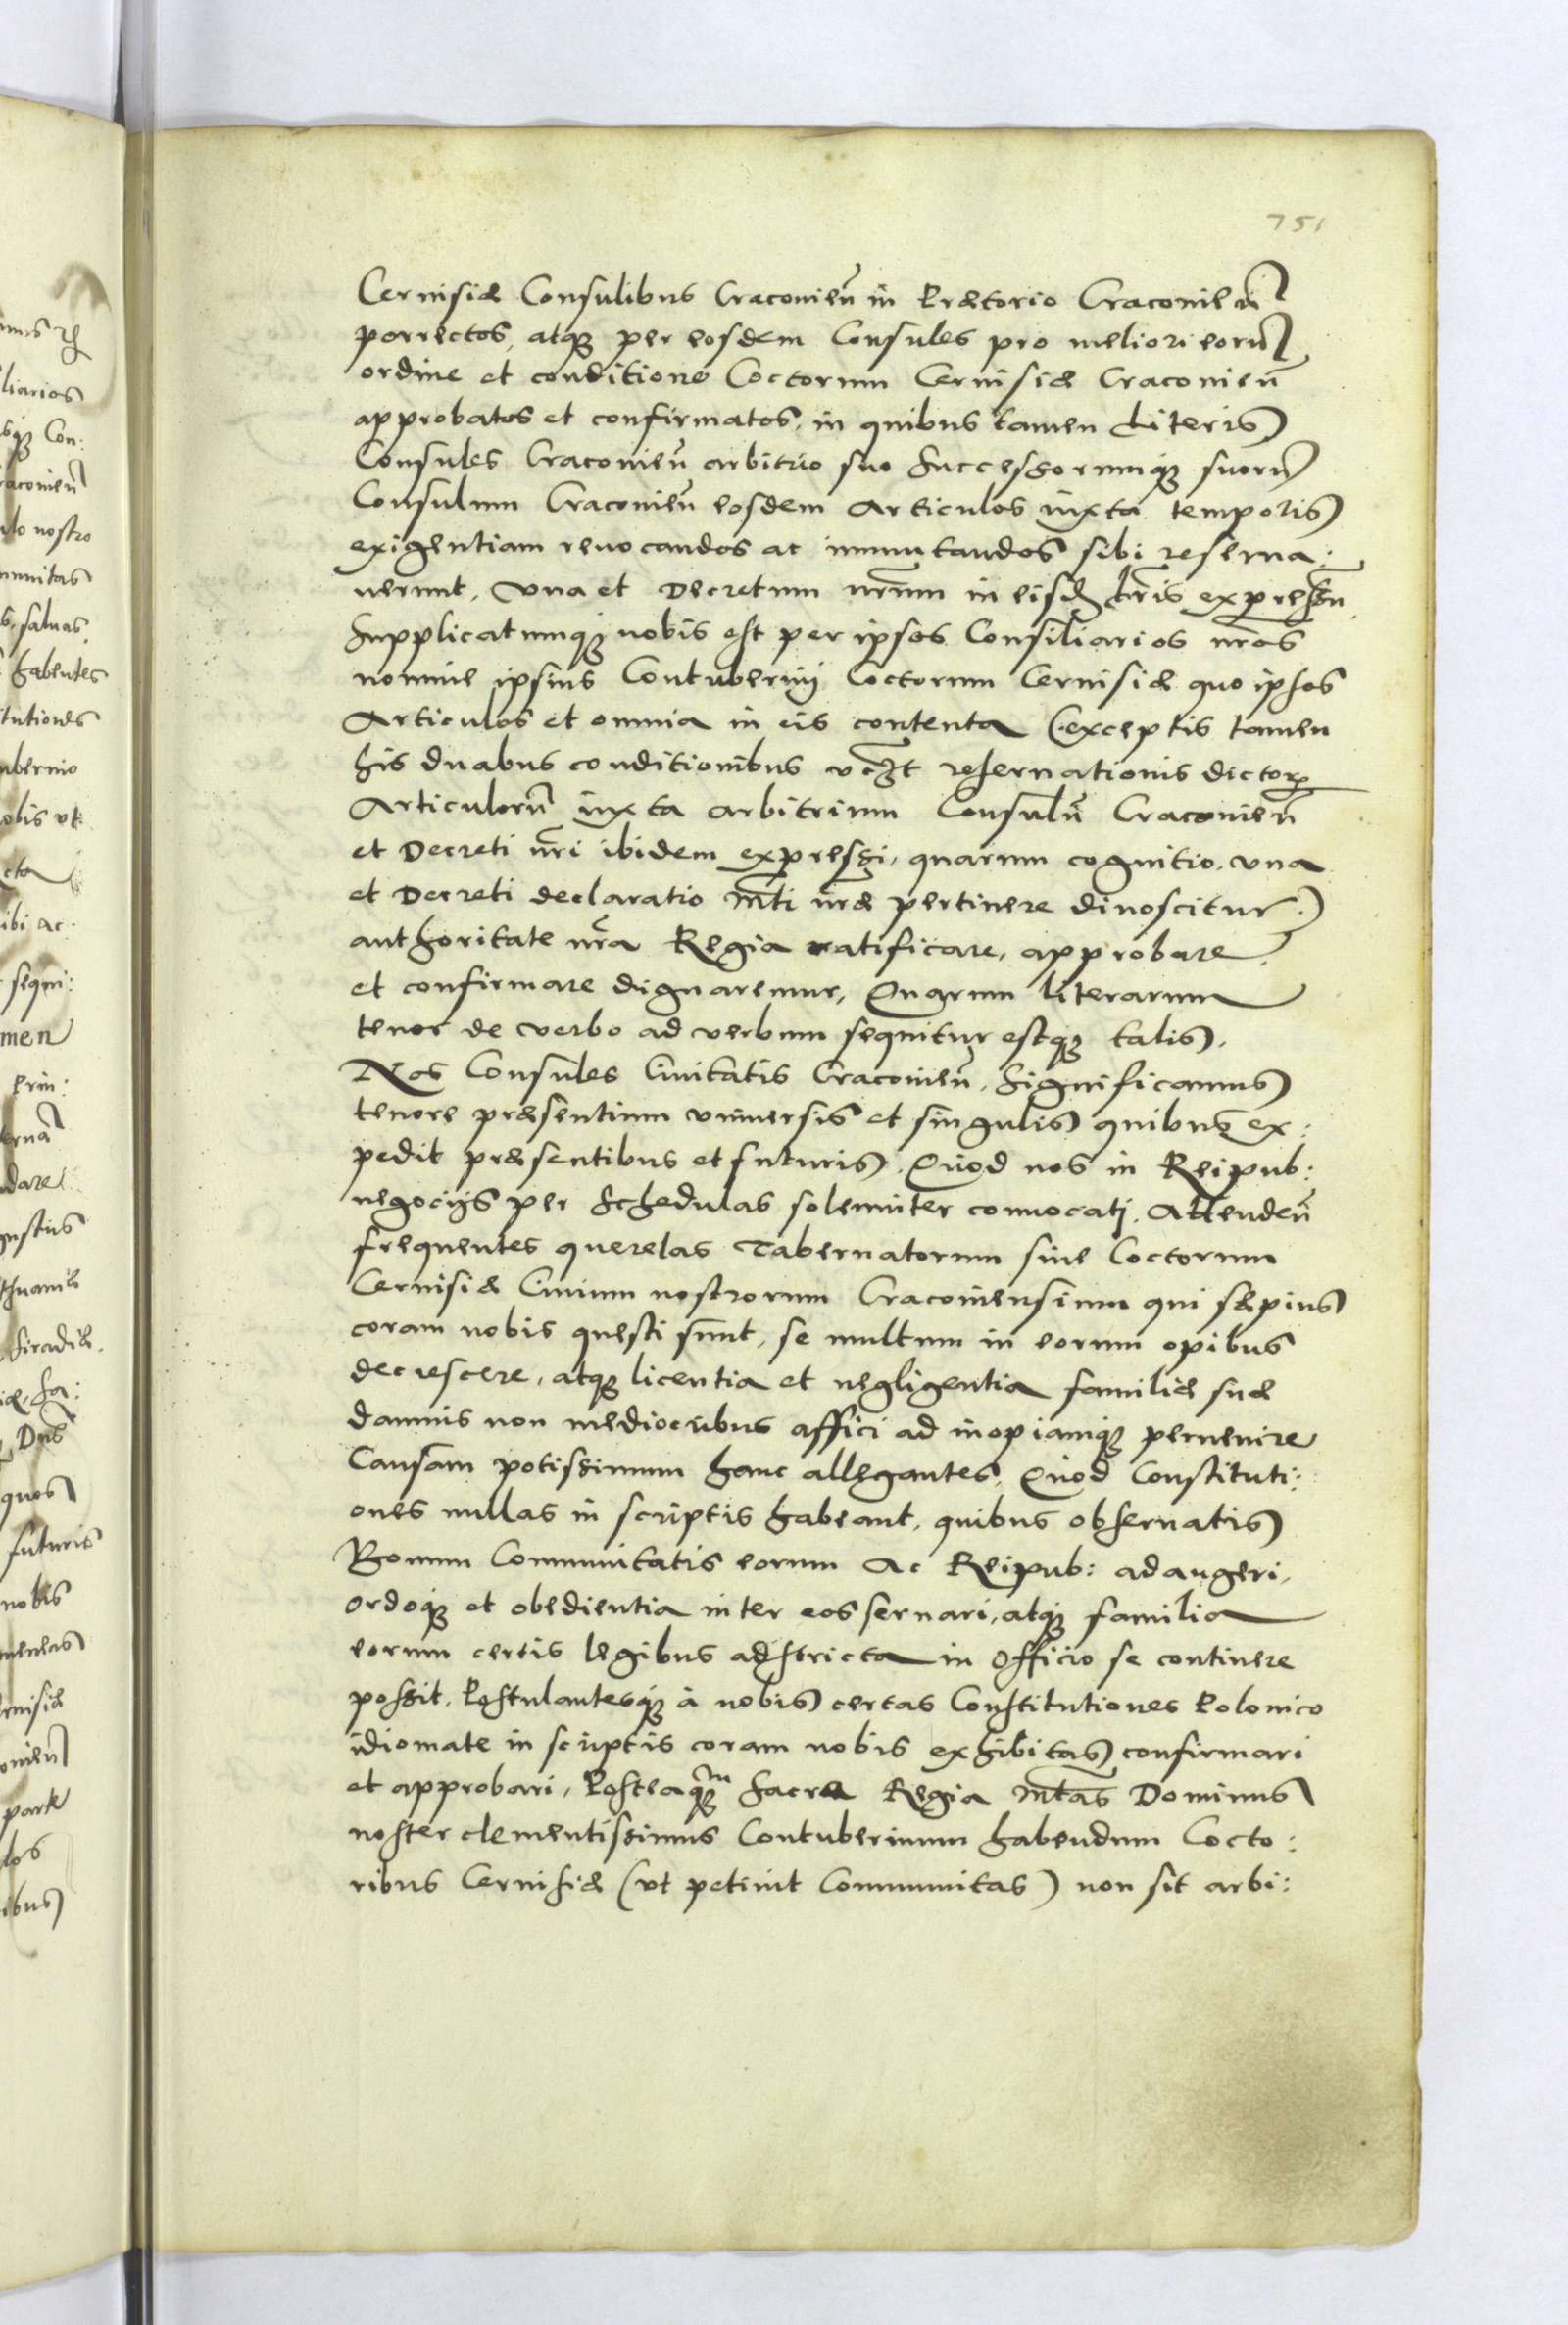 751
Cervisiæ Consulibus Cracovien̄ in Prætorio Cracovien̄
porrectos, atqȝ per eosdem Consules pro meliori eorū
ordine et conditione Coctorum Cervisiæ Cracovien̄
approbatos et confirmatos, in quibus tamen Literis
Consules Cracovien̄ arbitrio suo Successorumqȝ suorū
Consulum Cracovien̄ eosdem Articulos iuxta temporis
exigentiam revocandos ac immutandos sibi reserva:
verunt, Una et Decretum nr̄um in eisdē lr̄is expressū
Supplicatumqȝ nobis est per ipsos Consiliarios nr̄os
nomine ipsius Contubernij Coctorum Cervisiæ quo ipsos
Articulos et omnia in eis contenta (exceptis tamen
his duabus conditionibus vcȝt reservationis dictoꝝ
Articulorū iuxta arbitrium Consulū Cracovien̄
et Decreti nr̄i ibidem expressi, quarum cognitio, una
et Decreti declaratio Mt̄i nr̄æ pertinere dinoscitur)
authoritate nr̄a Regia ratificare, approbare
et confirmare dignaremur, Quarum literarum
tenor de verbo ad verbum sequitur estqȝ talis.
Nos Consules Civitatis Cracovien̄. Significamus
tenore præsentium universis et singulis quibus ex:
pedit præsentibus et futuris. Quod nos in Reipub:
negocijs per Schedulas solenniter convocati. Attenden̄
frequentes querelas Tabernatorum sive Coctorum
Cervisiæ Civium nostrorum Cracoviensium qui sæpius
coram nobis questi sunt, se multum in eorum opibus
decrescere, atqȝ licentia et negligentia familiæ suæ
damnis non mediocribus affici ad inopiamqȝ pervenire
Causam potissimum hanc allegantes, Quod Constituti:
ones nullas in scriptis habeant, quibus observatis
Bonum Communitatis eorum Ac Reipub: adaugeri,
ordoqȝ et obedientia inter eos servari, atqȝ familia
eorum certis legibus adstricta in Officio se continere
possit, Postulantesqȝ à nobis certas Constitutiones Polonico
idiomate in scriptis coram nobis exhibitas confirmari
et approbari, Posteaqȝm Sacra Regia Mt̄as Dominus
noster clementissimus Contubernium habendum Cocto:
ribus Cervisiæ (ut petiivit Communitas) non sit arbi: